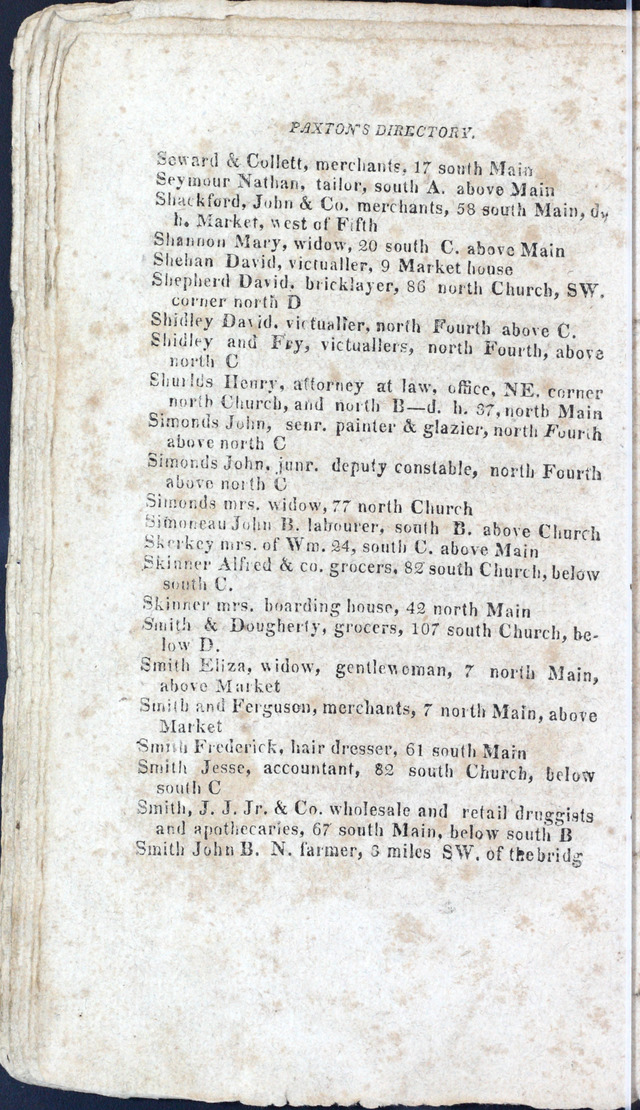 PAXTON'S DIRECTORY.
Seward & Collett, merchants, 17 south Main
Seymour Nathan, tailor, south A. above Main
Shackford, John & Co. merchants, 58 south Main, d.
h. Market, west of Fifth
Shannon Mary, widow, 20 south C. above Main
Shehan David, victualler, 9 Market house
Shepherd David. bricklayer, 86 north Church, SW.
corner north D
Shidley David. victualler, north Fourth above C.
Shidley and Fry, victuallers, north Fourth, above
north C
Shurlds Henry, attorney at law, office, NE. corner
north Church, and north B—d. h. 37, north Main
Simonds John, senr. painter & glazier, north Fourth
above north C
Simonds John, junr. deputy constable, north Fourth
above north C
Simonds mrs. widow, 77 north Church
Simoneau John B. labourer, south B. above Church
Skerkey mrs. of Wm. 24, south C. above Main
Skinner Alfred & co. grocers, 82 south Church, below
south C.
Skinner mrs. boarding house, 42 north Main
Smith & Dougherty, grocers, 107 south Church, be-
low D.
Smith Eliza, widow, gentlewoman, 7 north Main,
above Market
Smith and Ferguson, merchants, 7 north Main, above
Market
Smith Frederick, hair dresser, 61 south Main
Smith Jesse, accountant, 82 south Church, below
south C
Smith, J. J. Jr. & Co. wholesale and retail druggists
and apothecaries, 67 south Main, below south B
Smith John B. N. farmer, 3 miles SW. of the bridg